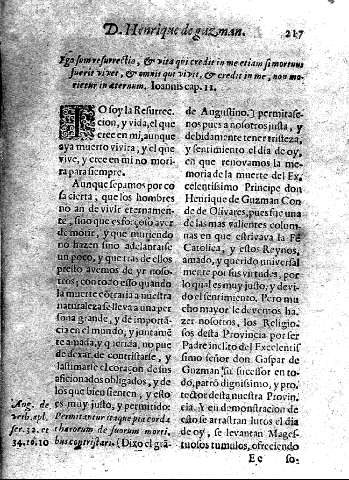 D. Henrique de guzman. 217
Ego som resurrectio, & vita qui credit in me etiam si mortuus
fuerit vivet, & omnis qui vivit, & credit in me, non mo-
rietur in æternum. Ioannis cap. 11.
YO soy la Resurrec-
cion, y vida, el que
cree en mi, aunque
aya muerto vivira, y el que
vive, y cree en mi no mori-
ra para siempre.
Aunque sepamos por co
sa cierta, que los hombres
no an de vivir eternamen-
te, sino que es forçoso aver
de morir, y que muriendo
no hazen sino adelantarse
un poco, y que tras de ellos
presto avemos de yr noso-
tros; con todo esso quando
la muerte cõtraria a nuestra
naturaleza se lleva a una per
sona grande, y de importã-
cia en el mundo, y juntamẽ
te amada, y querida, no pue
de dexar de contristarse, y
lastimarse el coraçon de sus
aficionados obligados, y de
los que bien sienten, y esto
es muy justo, y permitido:
Permitantur itaque pia corda
charorum de suorum morti-
bus contristari. (Dixo el grã-
Aug. de
verb. apl.
ser. 32. et
34. to. 10
de Augustino.) permitase-
nos pues a nosotros justa, y
debidamente tener tristeza,
y sentimiento el dia de oy,
en que renovamos la me-
moria de la muerte del Ex-
celentissimo Principe don
Henrique de Guzman Con
de de Olivares, pues fue una
de las mas valientes colum-
nas en que estrivava la Fé
Catolica, y estos Reynos,
amado, y querido universal
mente por sus virtudes, por
lo qual es muy justo, y devi-
do el sentimiento. Pero mu
cho mayor le devemos ha-
zer nosotros, los Religio-
sos desta Provincia por ser
Padre inclito del Excelentis
simo señor don Gaspar de
Guzman su sucessor en to-
do, patrõ dignissimo, y pro-
tector desta nuestra Provin-
cia. Y en demonstracion de
esto se arrastran lutos el dia
de oy, se levantan Mages-
tuosos tumulos, ofreciendo
E e so-